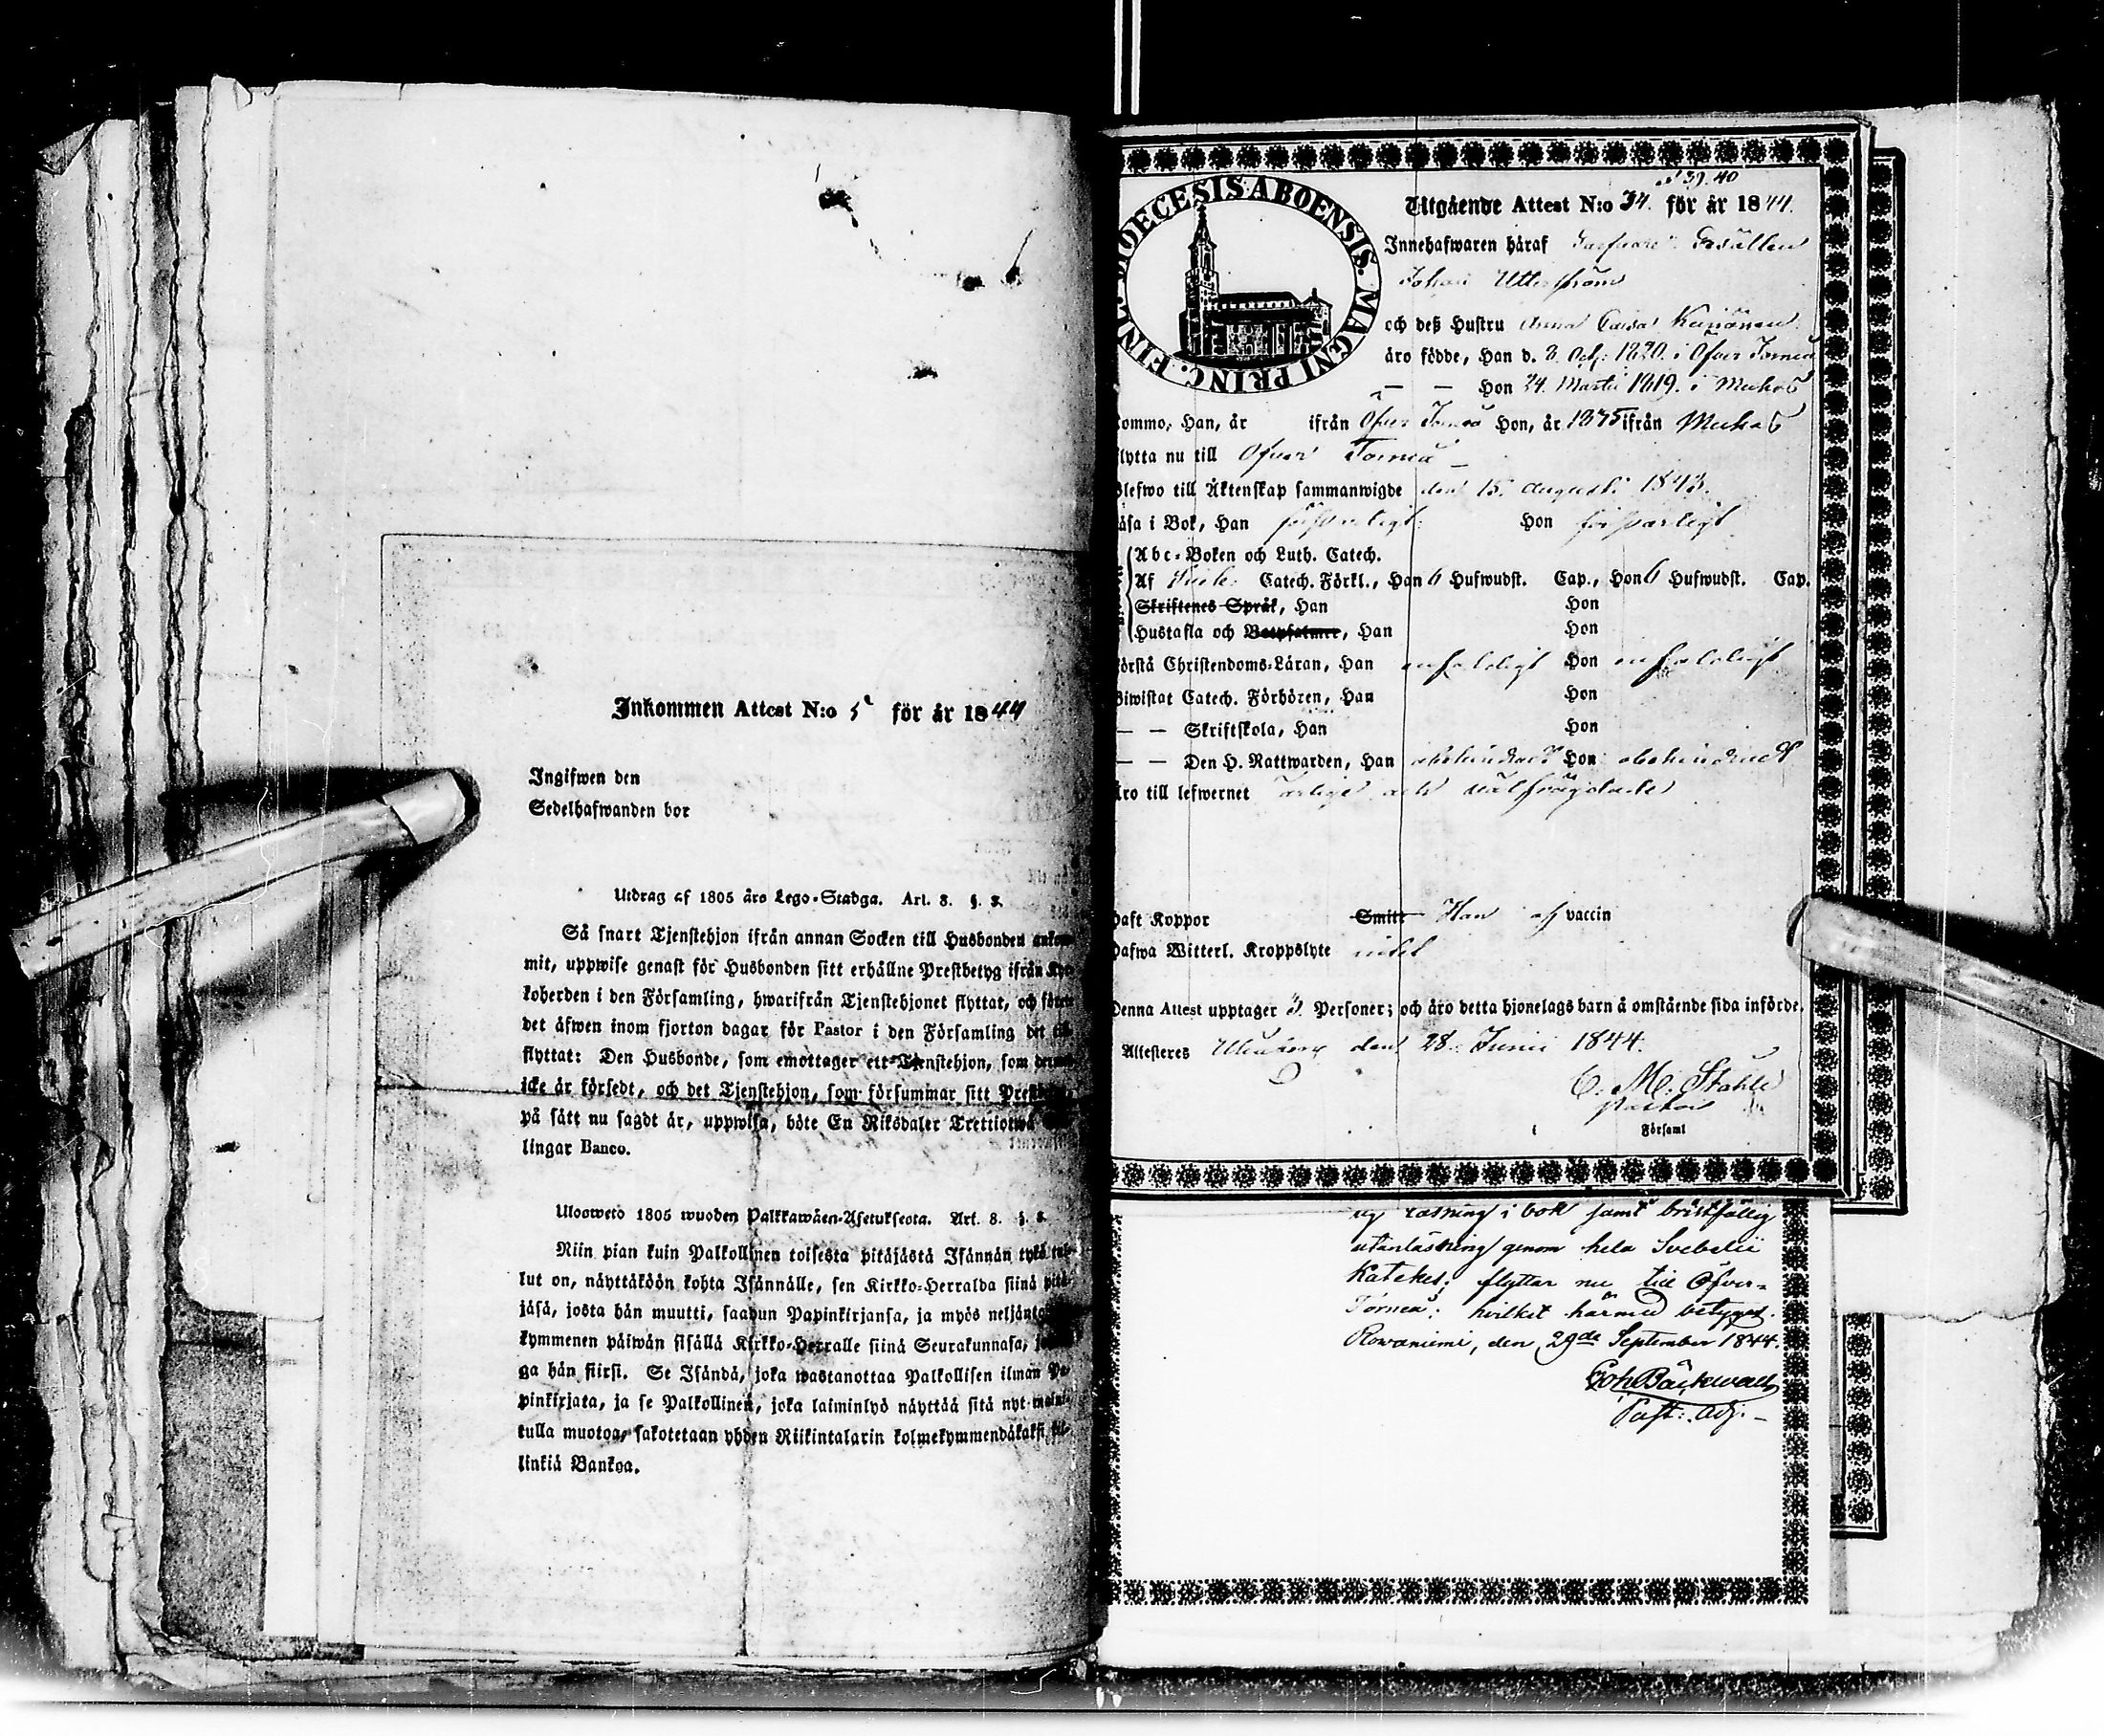 Inkommen Attest N:o 5 för år 1844
Ingifwen den
Sedelhafwanden bor
Utdrag af 1805 års Lego-Stadga. Art. 8. §. 8.
Så snart Tjenstehjon ifrån annan Socken till Husbonden ankom-
mit, uppwise genast för Husbonden sitt erhållne Prestbetyg ifrån Kyr-
koherden i den Församling, hwarifrån Tjenstehjonet flyttat, och förete
det äfwen inom fjorton dagar för Pastor i den Församling det till-
flyttat: Den Husbonde, som emottager ett Tjenstehjon, som dermed
icke är försedt, och det Tjenstehjon, som försummar sitt Prestbetyg,
på sätt nu sagdt är, uppwisa, böte En Riksdaler Trettiotwå
lingar Banco.
Ulosweto 1805 wuoden Palkkawäen-Asetuksesta. Art. 8. §. 8.
Niin pian kuin Palkollinen toisesta pitäjästä Isännän tykö tul-
lut on, näyttäköön kohta Isännälle, sen Kirkko-Herralda siinä pitä-
jäsä, josta hän muutti, saadun Papinkirjansa, ja myös neljäntoista
kymmenen päiwän sisällä Kirkko-Herralle siinä Seurakunnasa, johon-
ga hän siirsi. Se Isändä, joka wastanottaa Palkollisen ilman Pa-
pinkirjata, ja se Palkollinen, joka laiminlyö näyttää sitä nyt maini-
tulla muotoa, sakotetaan yhden Riikintalarin kolmekymmendäkaksi kil-
linkiä Bankoa.
DIOECESIS ABOENSIS. MAGNI PRINC. FINL.
39. 40
Utgående Attest N:o 34. för år 1844.
Innehafwaren häraf Gesällen
Johan Utterström
och deß Hustru Anna Caisa
äro födde, Han d. 8. Oct: 1820. i Öfver Torneå
— — Hon 24. Martii 1819. i Muhos
kommo, Han, år ifrån Öfver Torneå Hon, år 1835 ifrån Muhos
flytta nu till Öfver Torneå
Blefwo till Äktenskap sammanwigde den 15. Augusti 1843.
läsa i Bok, Han försvarligt Hon försvarligt
Abc-Boken och Luth. Catech.
Af Sveb: Catech. Förkl., Han 6 Hufwudst. Cap., Hon 6 Hufwudst. Cap.
Skriftenes Språk, Han Hon
Hustafla och Botpsalmer, Han Hon
förstå Christendoms-Läran, Han enfaldigt Hon enfaldigt
Biwistat Catech. Förhören, Han Hon
— — Skriftskola, Han Hon
— — Den H. Nattwarden, Han obehindradt Hon obehindradt
äro till lefwernet ärlige och välfrägdade
Haft Koppor Smitt Han af vaccin
Hafwa Witterl. Kroppslyte intet
Denna Attest upptager 3 Personer; och äro detta hjonelags barn å omstående sida införde.
Attesteres Uleåborg den 28. Junii 1844.
C. M. Ståhle
Pastor
Församl
läsning i bok samt bristfällig
utanläsning genom hela Svebelii
Katekes; flyttar nu till Öfver-
Torneå: hvilket härmed betygas.
Rowaniemi, den 29de September 1844.
Joh Bäckwall
Past: Adj.